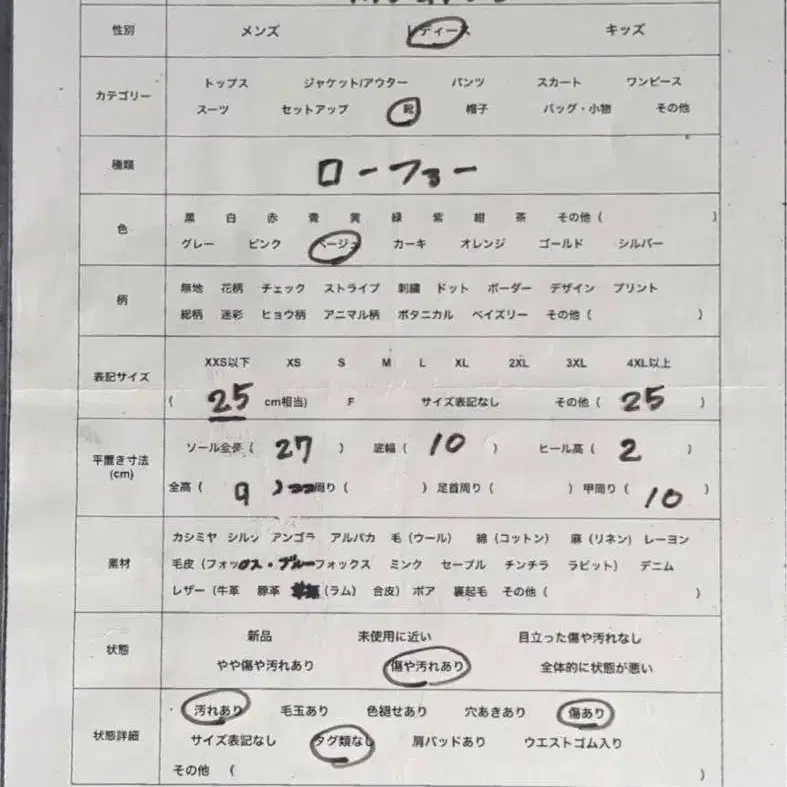 性別 メンズ レディース キッズ
カテゴリー
トップス ジャケット/アウター パンツ スカート ワンピース
スーツ セットアップ 靴 帽子 バッグ・小物 その他
種類 ローファー
色
黒 白 赤 青 黄 緑 紫 紺 茶 その他 ( )
グレー ピンク ベージュ カーキ オレンジ ゴールド シルバー
柄
無地 花柄 チェック ストライプ 刺繍 ドット ボーダー デザイン プリント
総柄 迷彩 ヒョウ柄 アニマル柄 ボタニカル ペイズリー その他 ( )
表記サイズ
XXS以下 XS S M L XL 2XL 3XL 4XL以上
( 25 cm相当) F サイズ表記なし その他 ( 25 )
平置き寸法
(cm)
ソール全長 ( 27 ) 底幅 ( 10 ) ヒール高 ( 2 )
全高 ( 9 ) 周り ( ) 足首周り ( ) 甲周り ( 10 )
素材
カシミヤ シルク アンゴラ アルパカ 毛 (ウール) 綿 (コットン) 麻 (リネン) レーヨン
毛皮 (フォックス・ブルーフォックス ミンク セーブル チンチラ ラビット) デニム
レザー (牛革 豚革 (ラム) 合皮) ボア 裏起毛 その他 ( )
状態
新品 未使用に近い 目立った傷や汚れなし
やや傷や汚れあり 傷や汚れあり 全体的に状態が悪い
状態詳細
汚れあり 毛玉あり 色褪せあり 穴あきあり 傷あり
サイズ表記なし タグ類なし 肩パッドあり ウエストゴム入り
その他 ( )